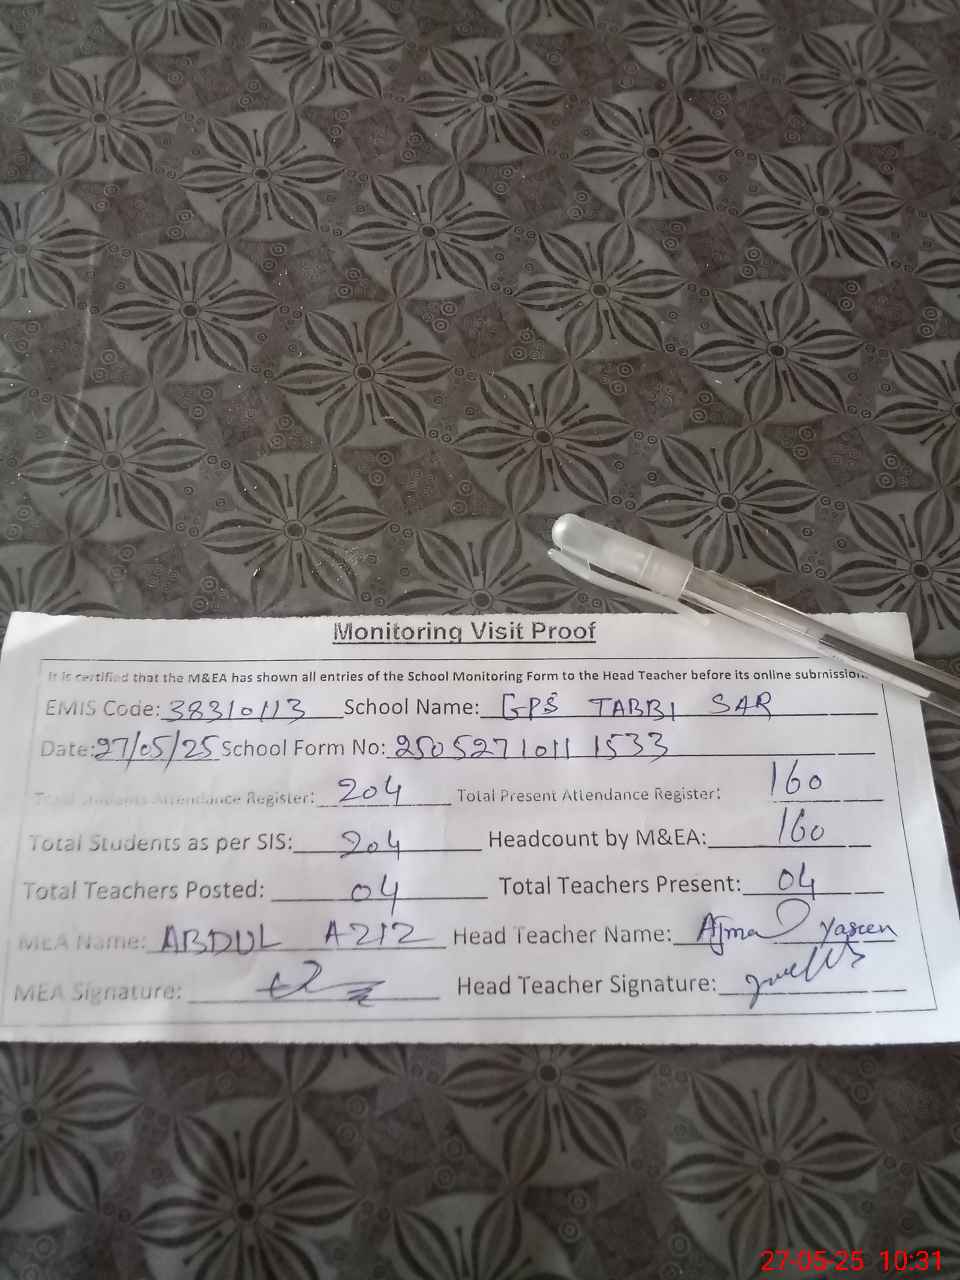 Monitoring Visit Proof
It is certified that the M&EA has shown all entries of the School Monitoring Form to the Head Teacher before its online submission.
EMIS Code: 38310113 School Name: GPS TABBI SAR
Date: 27/05/25 School Form No: 25052710111533
Total Students Attendance Register: 204 Total Present Attendance Register: 160
Total Students as per SIS: 204 Headcount by M&EA: 160
Total Teachers Posted: 04 Total Teachers Present: 04
MEA Name: ABDUL AZIZ Head Teacher Name: Ajmal Yaseen
MEA Signature: Head Teacher Signature:
27-05-25 10:31